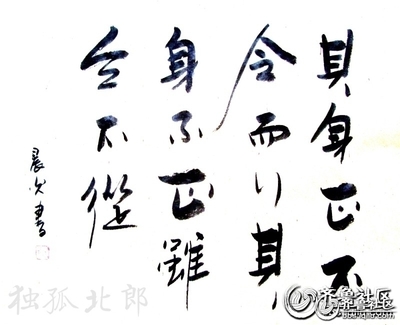 其身正不
令而行其
身不正雖
令不從
晨光書
独孤北郎
齐鲁社区